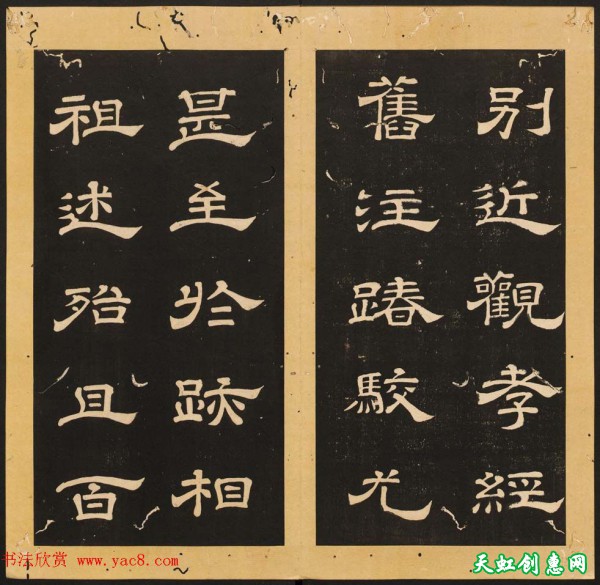 別近觀孝經
舊注踳駮尤
是至於跡相
祖述殆且百
书法欣赏 www.yac8.com
天虹创惠网